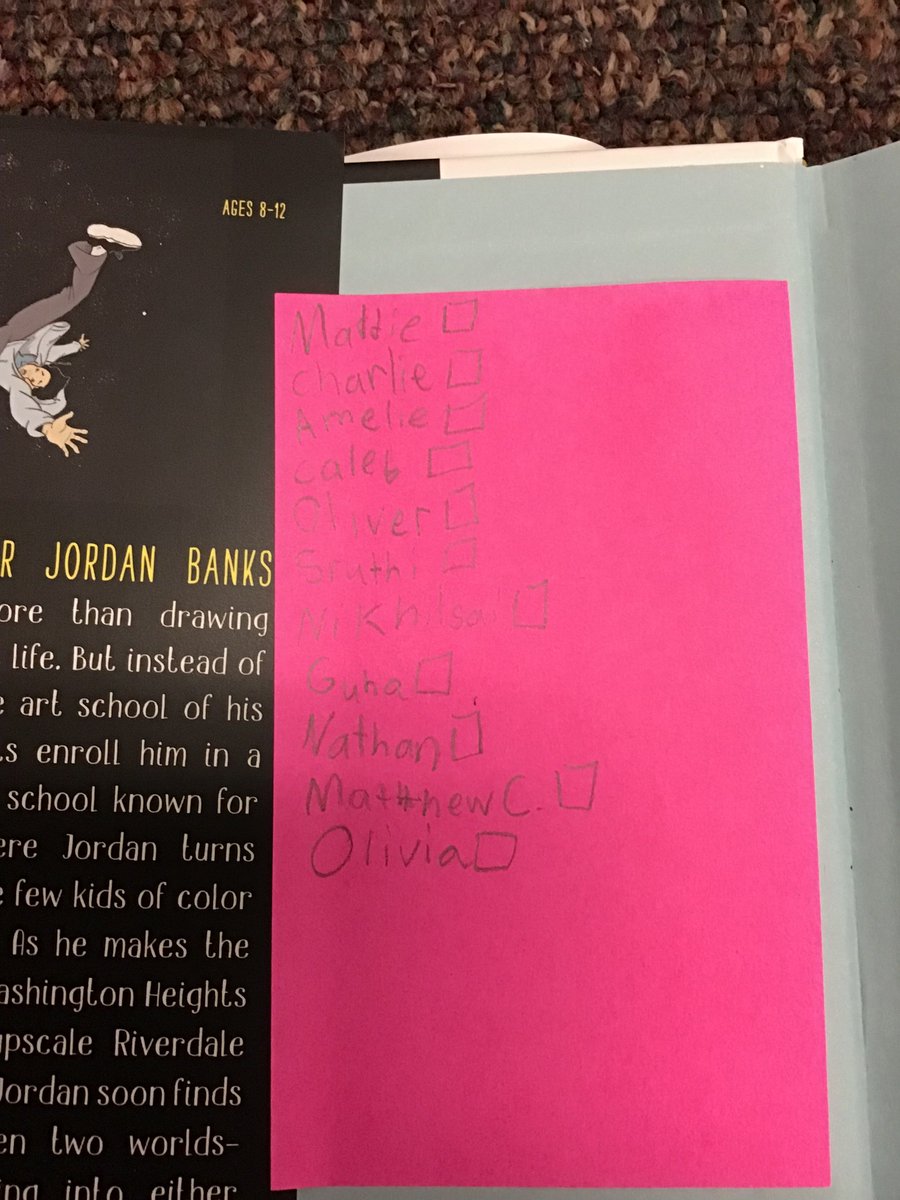 AGES 8-12
R JORDAN BANKS
ore than drawing
life. But instead of
e art school of his
ts enroll him in a
school known for
ere Jordan turns
e few kids of color
As he makes the
ashington Heights
upscale Riverdale
Jordan soon finds
en two worlds-
ing into either
Mattie
Charlie
Amelie
Caleb
Oliver
Sruthi
Nikhilsai
Guha
Nathan
Matthew C.
Olivia